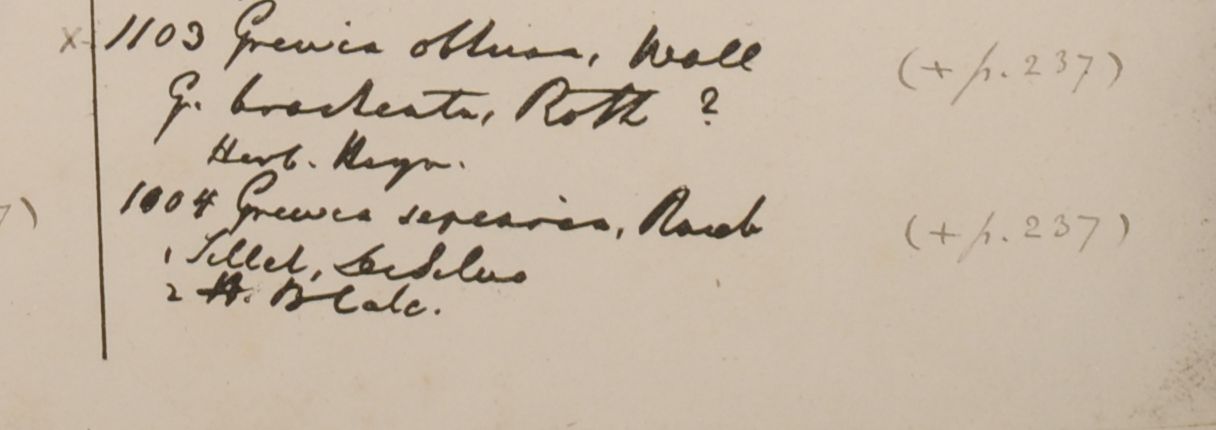 x 1103 Grewia obtusa, Wall (+ p. 237)
G. bracteata, Roth ?
Herb. Heyn.
1104 Grewia sepiaria, Roxb (+ p. 237)
7)
1 Sillet, De Silva
2 H. B Calc.